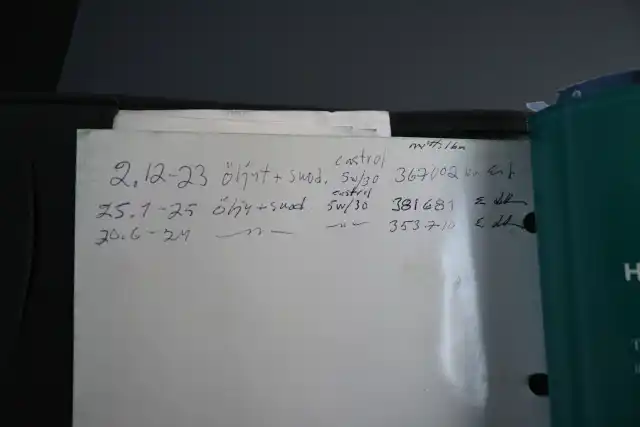 castrol
2.12-23 öljyt + suod. 5w/30 367002 km
castrol
25.1-25 öljy + suod 5w/30 381681
20.6-24 —"— —"— 353.710
H